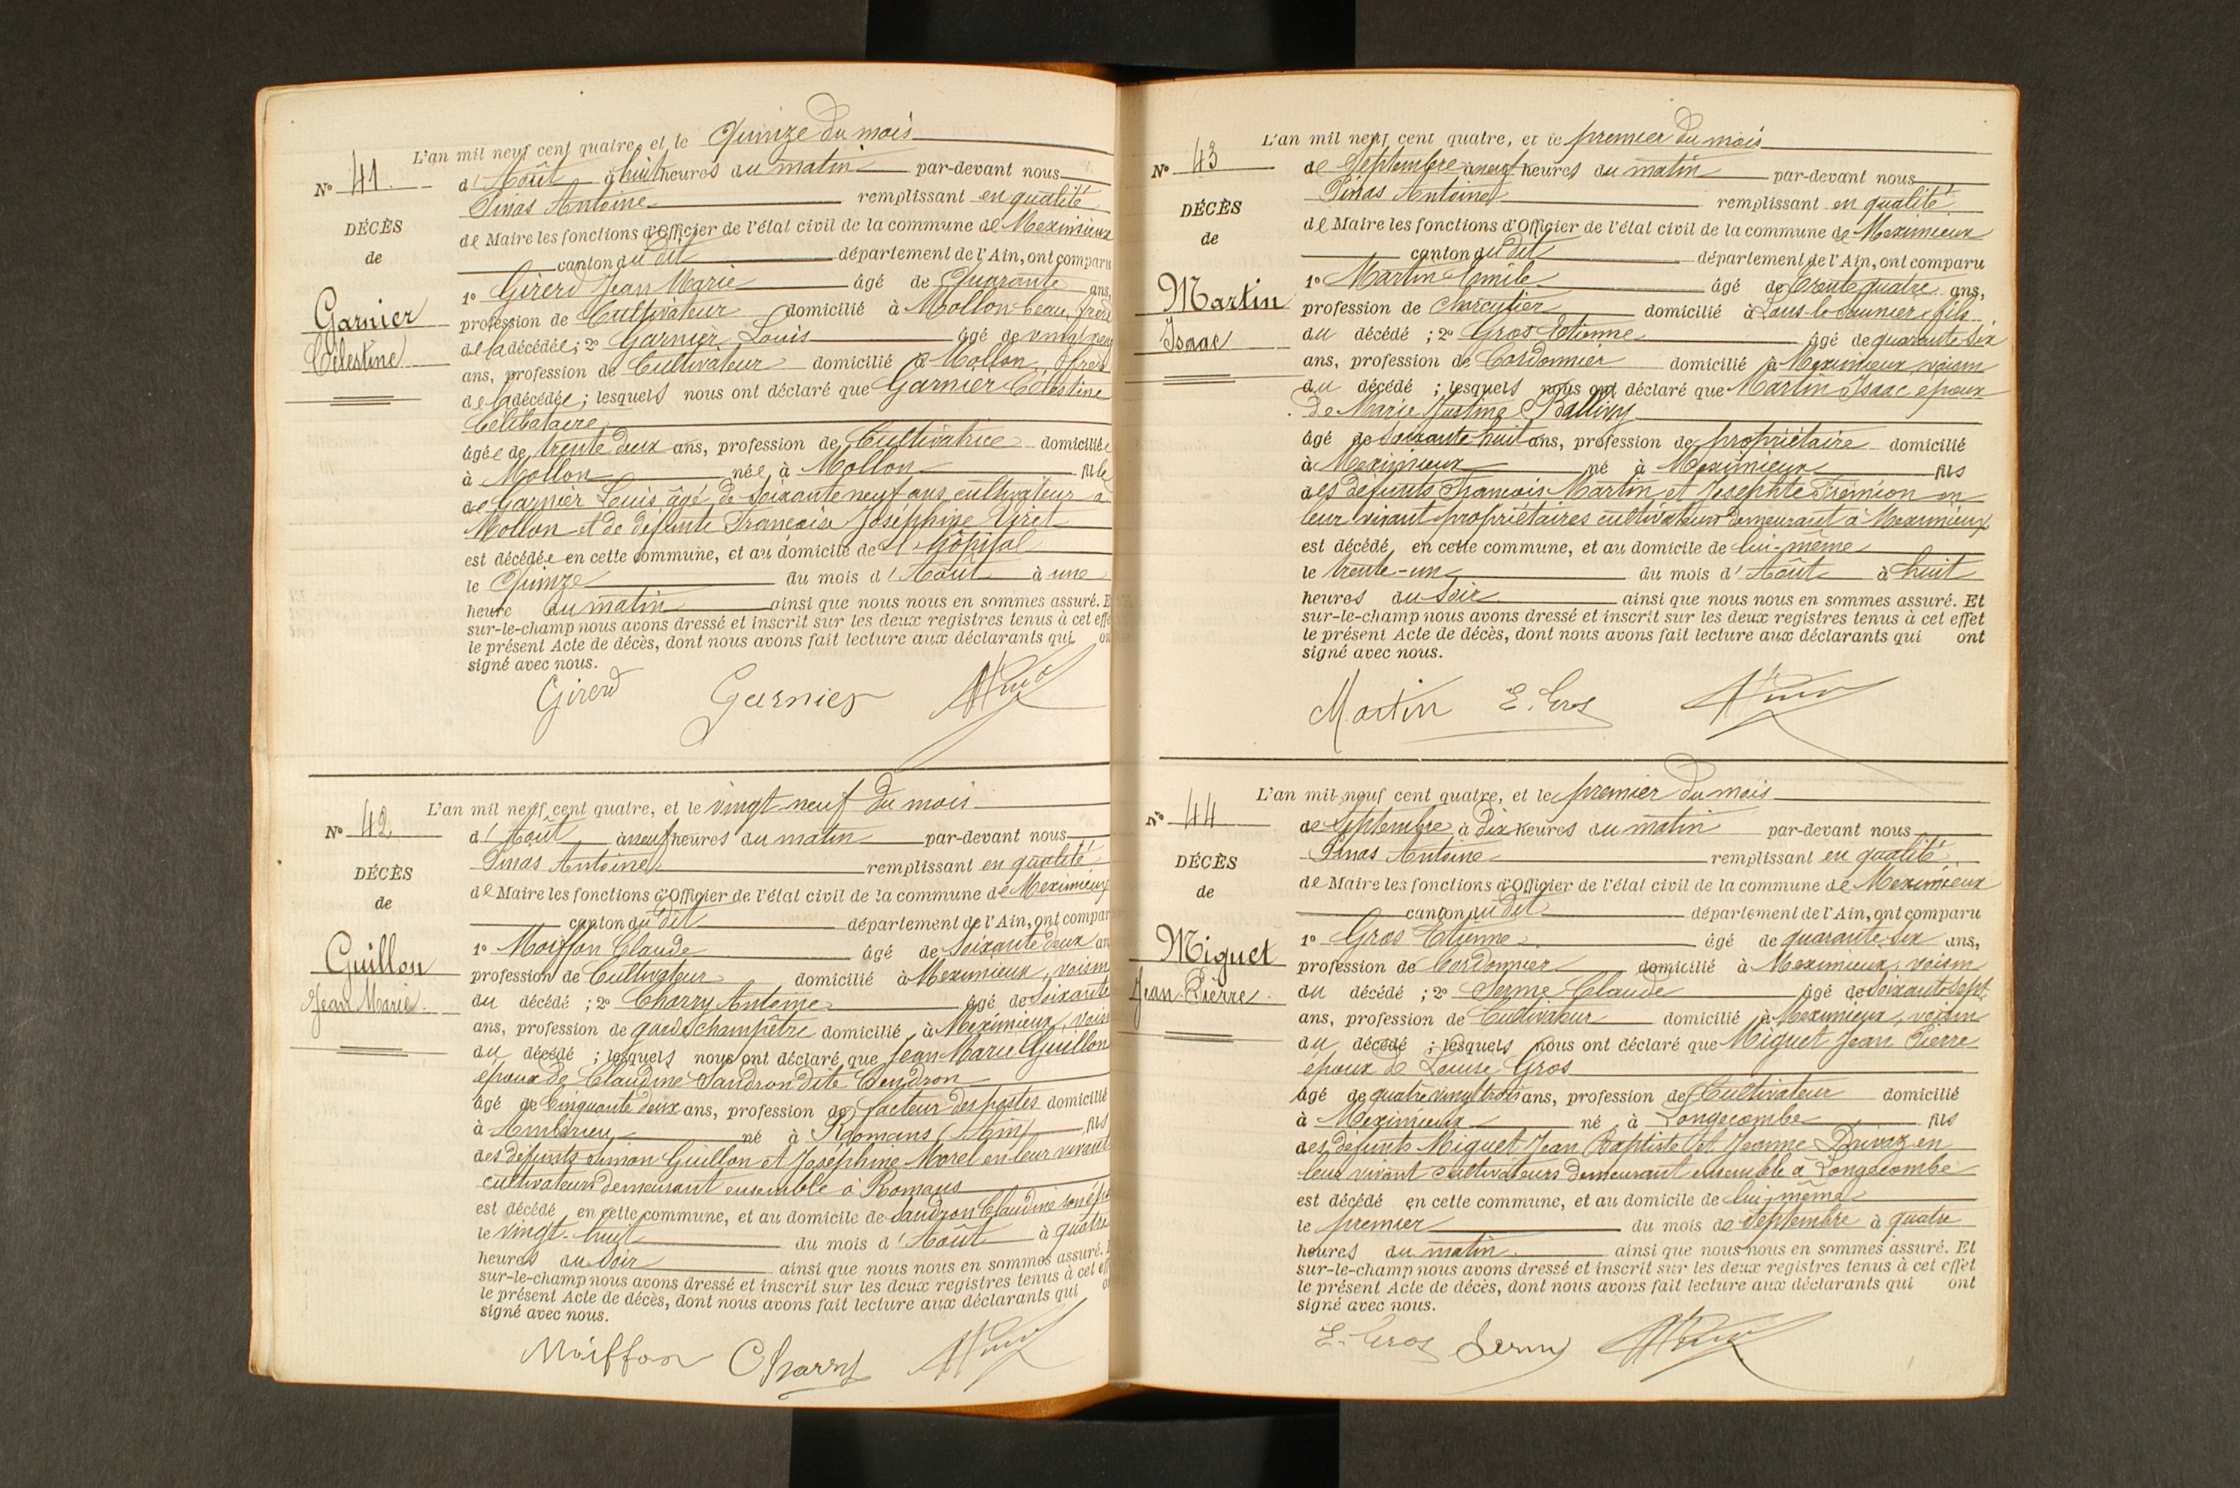 L'an mil neuf cent quatre, et le Quinze du mois
N° 41
d'Août à huit heures du matin par-devant nous
Pinas Antoine remplissant en qualité
DÉCÈS
de Maire les fonctions d'Officier de l'état civil de la commune de Meximieux
de
canton du dit département de l'Ain, ont comparu
1° Girerd Jean Marie âgé de Quarante ans,
Garnier
profession de Cultivateur domicilié à Mollon beau frère
de la décédée; 2° Garnier Louis âgé de vingt neuf
Célestine
ans, profession de Cultivateur domicilié à Mollon, frère
de la décédée; lesquels nous ont déclaré que Garnier Célestine
Célibataire
âgée de trente deux ans, profession de Cultivatrice domiciliée
à Mollon née à Mollon fille
de Garnier Louis âgé de soixante neuf ans cultivateur à
Mollon et de défunte Françoise Joséphine Viret
est décédée en cette commune, et au domicile de l'Hôpital
le Quinze du mois d'Août à une
heure du matin ainsi que nous nous en sommes assuré. E
sur-le-champ nous avons dressé et inscrit sur les deux registres tenus à cet effe
le présent Acte de décès, dont nous avons fait lecture aux déclarants qui on
signé avec nous.
Girerd Garnier
L'an mil neuf cent quatre, et le vingt neuf du mois
N° 42
d'Août à neuf heures du matin par-devant nous
Pinas Antoine remplissant en qualité
DÉCÈS
de Maire les fonctions d'Officier de l'état civil de la commune de Meximieux
de
canton du dit département de l'Ain, ont compar
1° Moiffon Claude âgé de soixante deux an
Guillon
profession de Cultivateur domicilié à Meximieux, voisin
Jean Marie
du décédé; 2° Charry Antoine âgé de soixante
ans, profession de garde champêtre domicilié à Meximieux, voisin
du décédé; lesquels nous ont déclaré que Jean Marie Guillon
époux de Claudine Sandron dite Cendron
âgé de Cinquante deux ans, profession de facteur des postes domicilié
à Ambérieu né à Romans (Ain) fils
des défunts Simon Guillon et Joséphine Morel en leur vivant
cultivateurs demeurant ensemble à Romans
est décédé en cette commune, et au domicile de Sandron Claudine son
le vingt-huit du mois d'Août à quatre
heures du soir ainsi que nous nous en sommes assuré. E
sur-le-champ nous avons dressé et inscrit sur les deux registres tenus à cet eff
le présent Acte de décès, dont nous avons fait lecture aux déclarants qui o
signé avec nous.
Moiffon Charry
L'an mil neuf cent quatre, et le premier du mois
N° 43
de Septembre à neuf heures du matin par-devant nous
Pinas Antoine remplissant en qualité
DÉCÈS
de Maire les fonctions d'Officier de l'état civil de la commune de Meximieux
de
canton du dit département de l'Ain, ont comparu
1° Martin Emile âgé de trente quatre ans,
Martin
profession de charcutier domicilié à Lons-le-Saunier, fils
Isaac
du décédé; 2° Gros Etienne âgé de quarante six
ans, profession de Cordonnier domicilié à Meximieux voisin
du décédé; lesquels nous ont déclaré que Martin Isaac époux
de Marie Justine
âgé de soixante huit ans, profession de propriétaire domicilié
à Meximieux né à Meximieux fils
des défunts François Martin et Josephte Frémion en
leur vivant propriétaires cultivateurs demeurant à Meximieux
est décédé en cette commune, et au domicile de lui-même
le trente-un du mois d'Août à huit
heures du soir ainsi que nous nous en sommes assuré. Et
sur-le-champ nous avons dressé et inscrit sur les deux registres tenus à cet effet
le présent Acte de décès, dont nous avons fait lecture aux déclarants qui ont
signé avec nous.
Martin E. Gros
L'an mil neuf cent quatre, et le premier du mois
N° 44
de Septembre à Dix heures du matin par-devant nous
Pinas Antoine remplissant en qualité
DÉCÈS
de Maire les fonctions d'Officier de l'état civil de la commune de Meximieux
de
canton du dit département de l'Ain, ont comparu
1° Gros Etienne âgé de quarante-six ans,
Miguet
profession de Cordonnier domicilié à Meximieux, voisin
Jean Pierre
du décédé; 2° Serme Claude âgé de soixante-sept
ans, profession de Cultivateur domicilié à Meximieux, voisin
du décédé; lesquels nous ont déclaré que Miguet Jean Pierre
époux de Louise Gros
âgé de quatre vingt trois ans, profession de Cultivateur domicilié
à Meximieux né à Longecombe fils
des défunts Miguet Jean Baptiste et Jeanne en
leur vivant cultivateurs demeurant ensemble à Longecombe
est décédé en cette commune, et au domicile de lui-même
le premier du mois de septembre à quatre
heures du matin ainsi que nous nous en sommes assuré. Et
sur-le-champ nous avons dressé et inscrit sur les deux registres tenus à cet effet
le présent Acte de décès, dont nous avons fait lecture aux déclarants qui ont
signé avec nous.
E. Gros